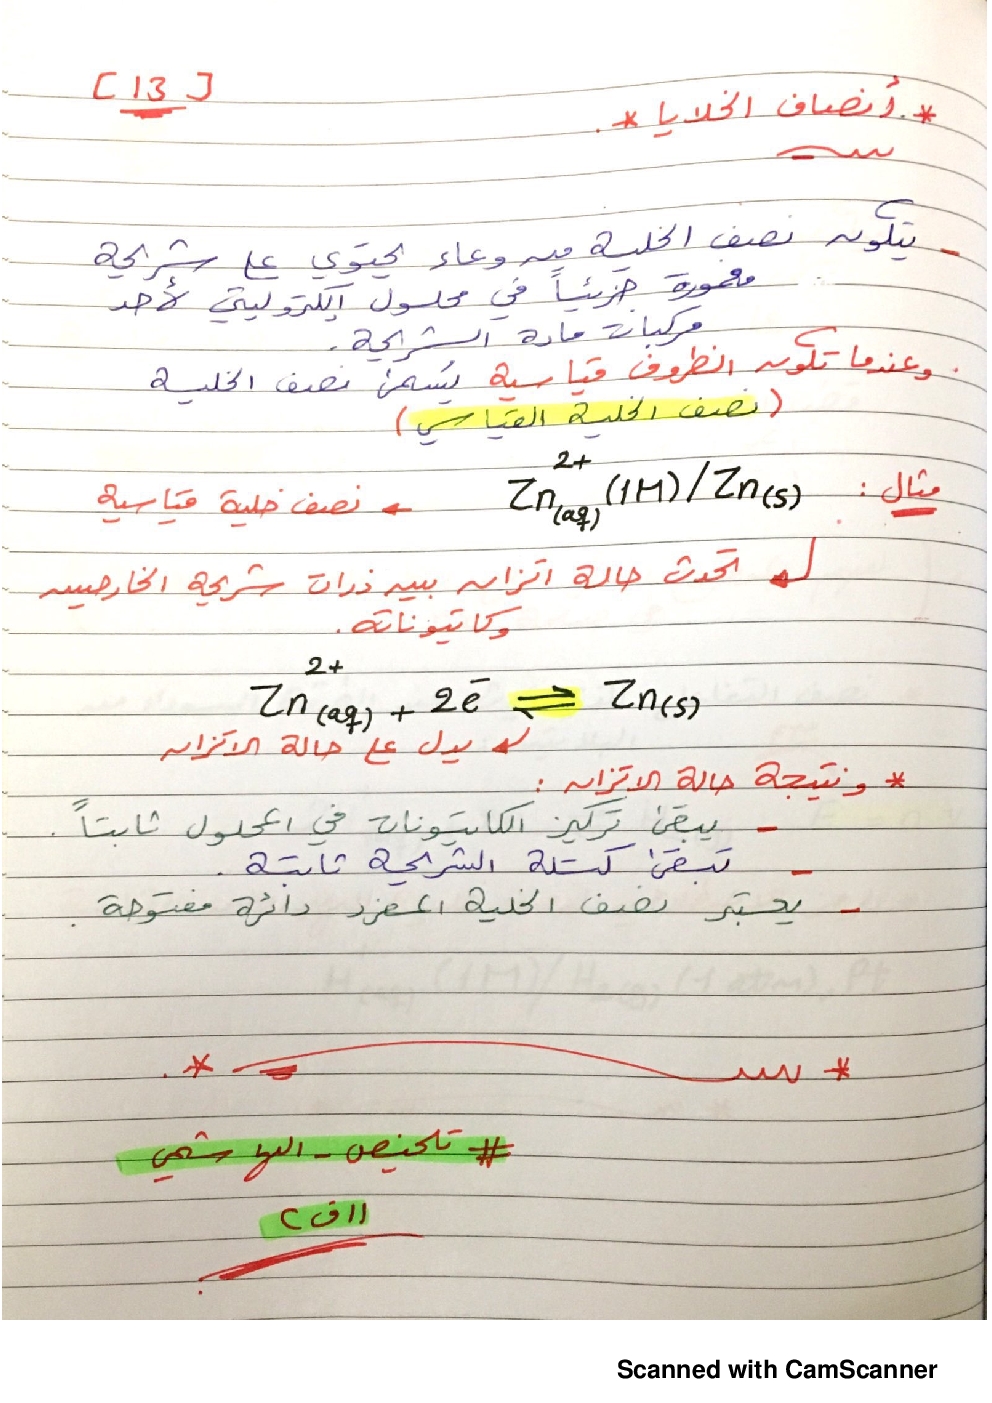 [ 13 ]
* أنصاف الخلايا *
- يتكون نصف الخلية من وعاء يحتوي على شريحة
مغمورة جزئياً في محلول إلكتروليتي لأحد
مركبات مادة الشريحة.
وعندما تكون الظروف قياسية يُسمى نصف الخلية
(نصف الخلية القياسي)
مثال : Zn²⁺(aq) (1M) / Zn(s) ← نصف خلية قياسية
↲ تحدث حالة اتزان بين ذرات شريحة الخارصين
وكاتيوناته.
Zn²⁺(aq) + 2e⁻ ⇌ Zn(s)
↲ يدل على حالة الاتزان
* ونتيجة حالة الاتزان :
- يبقى تركيز الكاتيونات في المحلول ثابتاً.
- تبقى كتلة الشريحة ثابتة.
- يعتبر نصف الخلية المفرد دائرة مفتوحة.
# تلخيص - الهاشمي
١١ف٢
Scanned with CamScanner